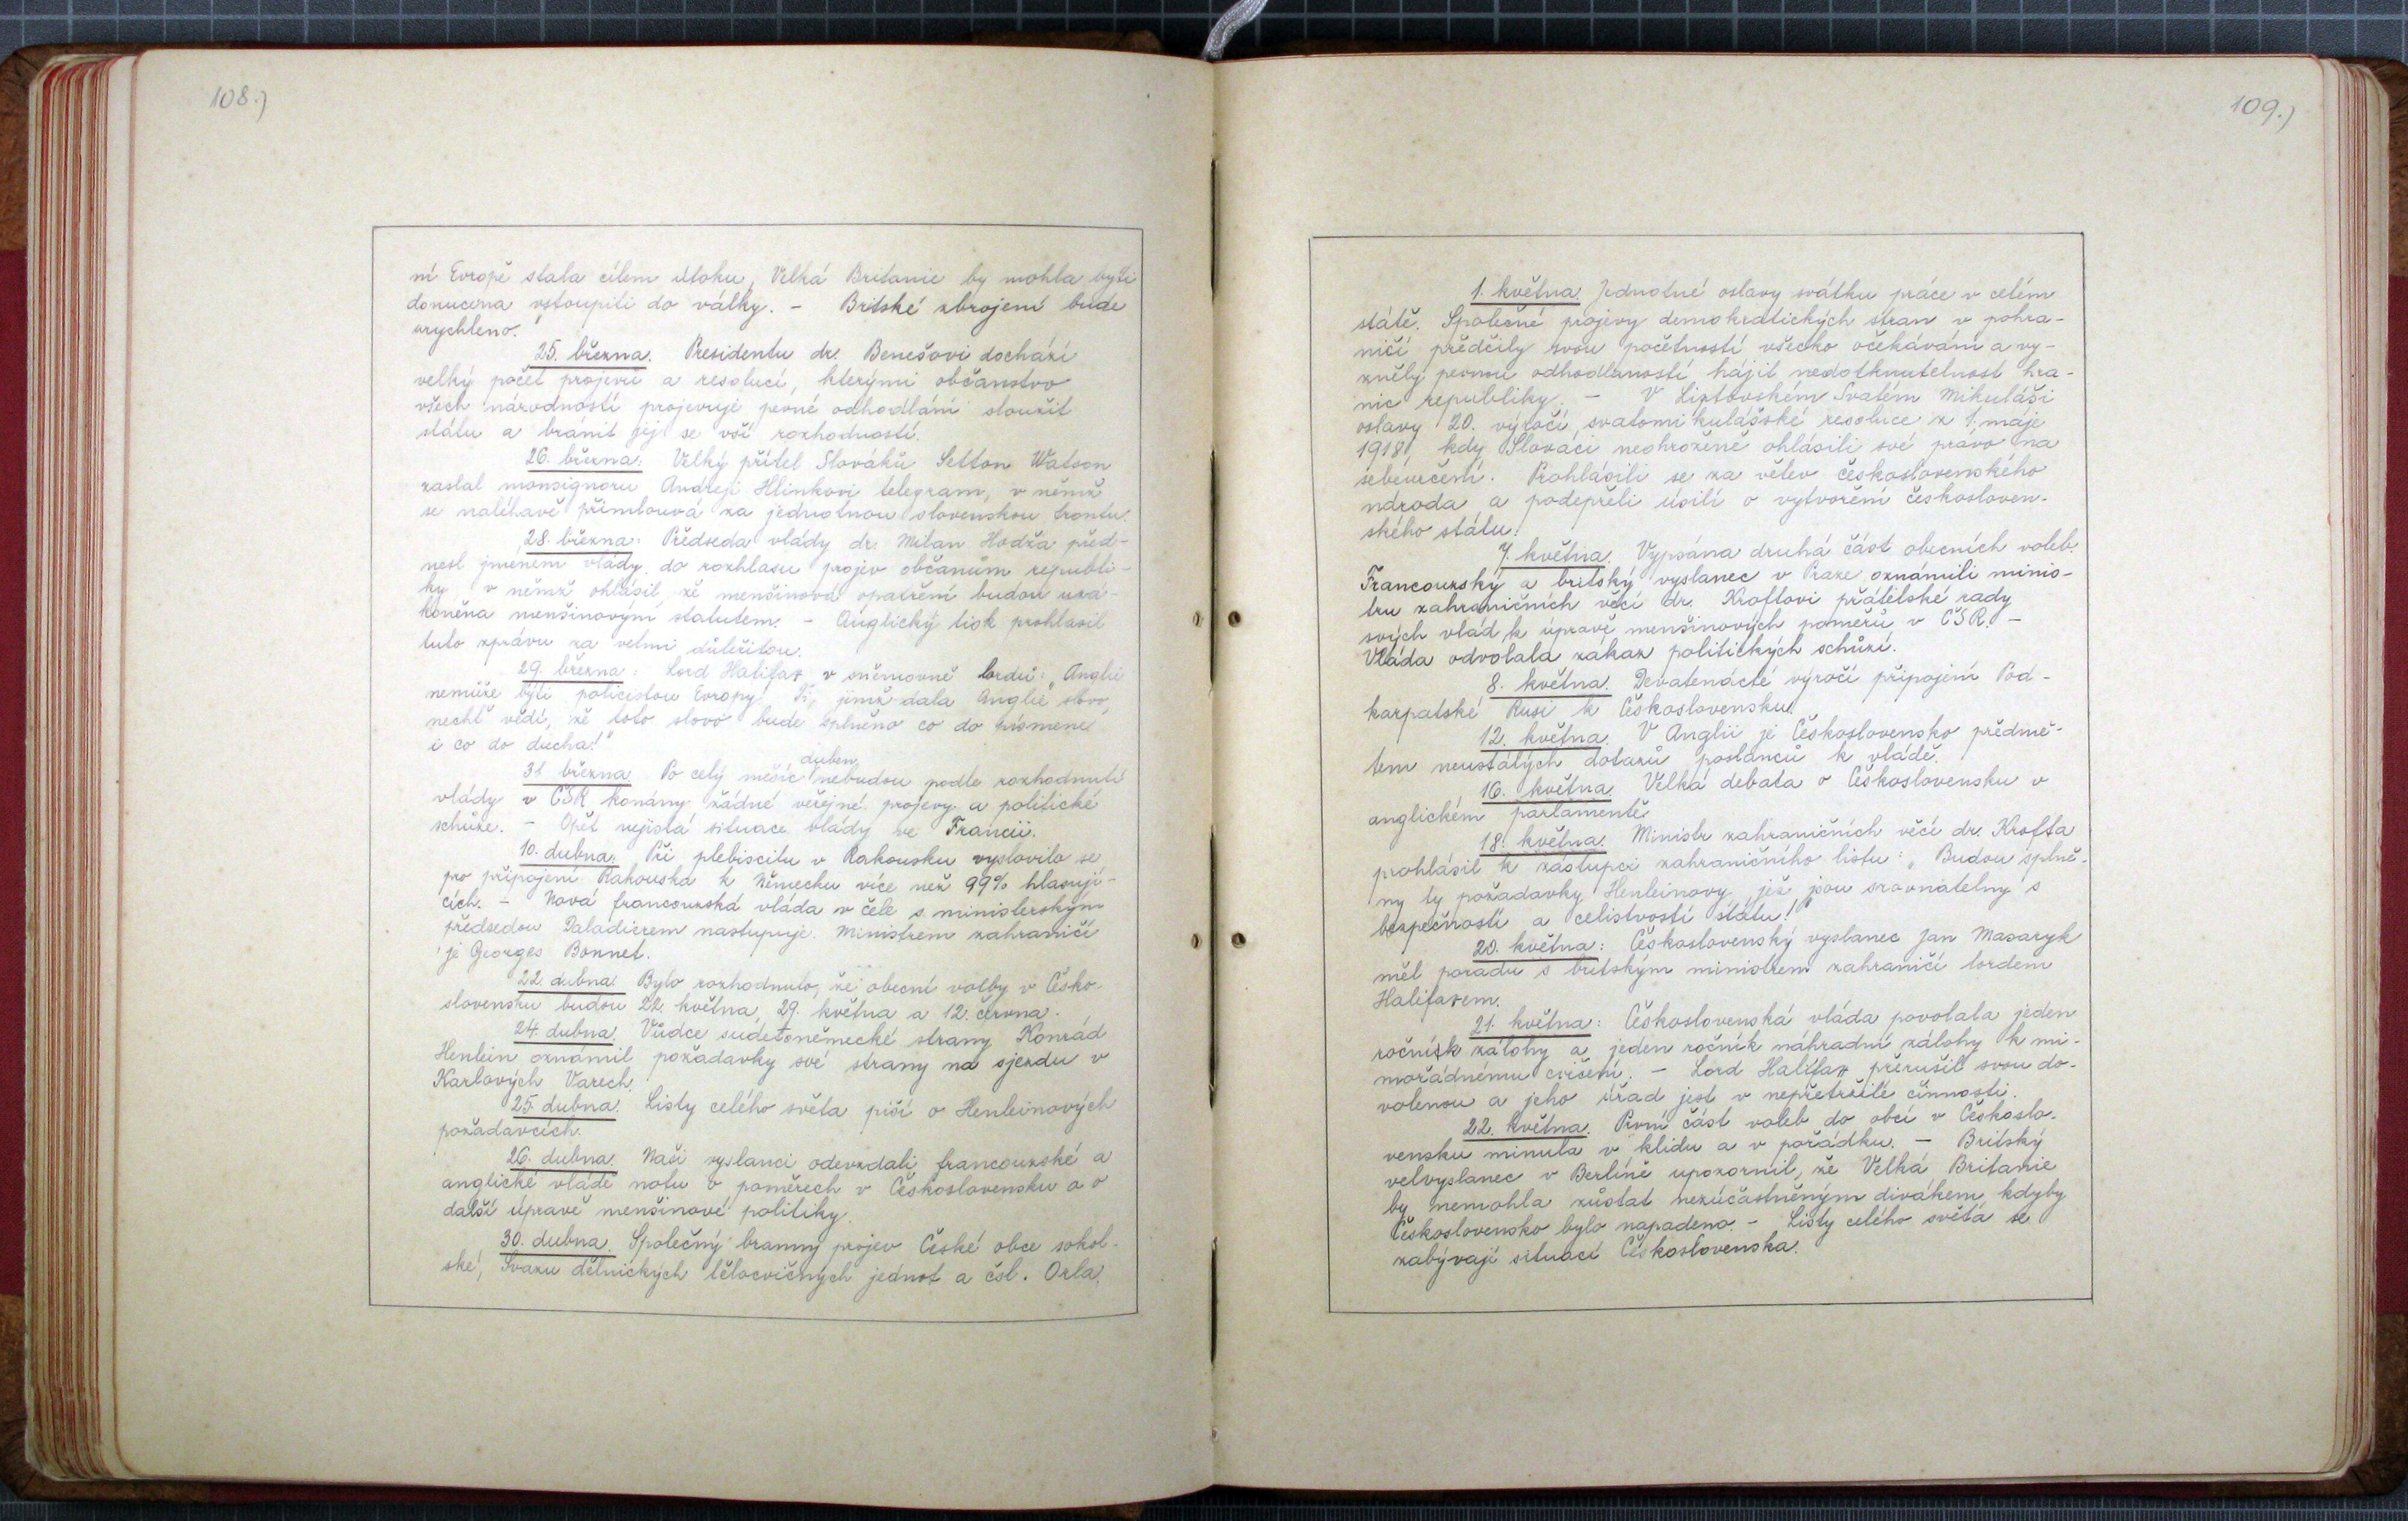 108.)
ní Evropě stala cílem útoku, Velká Britanie by mohla býti
donucena vstoupiti do války. - Britské zbrojení bude
urychleno."
25. března. Presidentu dr. Benešovi dochází
velký počet projevů a resolucí, kterými občanstvo
všech národností projevuje pevné odhodlání sloužit
státu a bránit jej se vší rozhodností.
26. března: Velký přítel Slováků Setton Watson
zaslal monsignoru Andreji Hlinkovi telegram, v němž
se naléhavě přimlouvá za jednotnou slovenskou frontu.
28. března: Předseda vlády dr. Milan Hodža před-
nesl jménem vlády do rozhlasu projev občanům republi-
ky, v němž ohlásil, že menšinová opatření budou uzá-
koněna menšinovým statutem. - Anglický tisk prohlásil
tuto zprávu za velmi důležitou.
29. března: Lord Halifax v sněmovně lordů: "Anglie
nemůže býti policistou Evropy. Ti, jimž dala Anglie slovo,
nechť vědí, že toto slovo bude splněno co do písmene
i co do ducha!"
31. března. Po celý měsíc duben nebudou podle rozhodnutí
vlády v ČSR konány žádné veřejné projevy a politické
schůze. - Opět nejistá situace vlády ve Francii.
10. dubna. Při plebiscitu v Rakousku vyslovilo se
pro připojení Rakouska k Německu více než 99% hlasují-
cích. - Nová francouzská vláda v čele s ministerským
předsedou Daladierem nastupuje. Ministrem zahraničí
je Georges Bonnet.
22. dubna. Bylo rozhodnuto, že obecní volby v Česko-
slovensku budou 22. května, 29. května a 12. června.
24. dubna. Vůdce sudetoněmecké strany Konrád
Henlein oznámil požadavky své strany na sjezdu v
Karlových Varech.
25. dubna. Listy celého světa píší o Henleinových
požadavcích.
26. dubna. Naši vyslanci odevzdali francouzské a
anglické vládě notu o poměrech v Československu a o
další úpravě menšinové politiky.
30. dubna. Společný branný projev České obce sokol-
ské, Svazu dělnických tělocvičných jednot a čsl. Orla.
109.)
1. května. Jednotné oslavy svátku práce v celém
státě. Společné projevy demokratických stran v pohra-
ničí předčily svou početností všecko očekávání a vy-
zněly pevnou odhodlaností hájit nedotknutelnost hra-
nic republiky. - V Liptovském Svatém Mikuláši
oslavy 20. výročí svatomikulášské resoluce z 1. máje
1918, kdy Slováci neohroženě ohlásili své právo na
sebeurčení. Prohlásili se za větev československého
národa a podepřeli úsilí o vytvoření českosloven-
ského státu.
7. května. Vypsána druhá část obecních voleb.
Francouzský a britský vyslanec v Praze oznámili minis-
tru zahraničních věcí dr. Kroftovi přátelské rady
svých vlád k úpravě menšinových poměrů v ČSR. -
Vláda odvolala zákaz politických schůzí.
8. května. Devatenácté výročí připojení Pod-
karpatské Rusi k Československu.
12. května. V Anglii je Československo předmě-
tem neustálých dotazů poslanců k vládě.
16. května. Velká debata o Československu v
anglickém parlamentě.
18. května. Ministr zahraničních věcí dr. Krofta
prohlásil k zástupci zahraničního listu: "Budou splně-
ny ty požadavky Henleinovy, jež jsou srovnatelny s
bezpečností a celistvostí státu!"
20. května: Československý vyslanec Jan Masaryk
měl poradu s britským ministrem zahraničí lordem
Halifaxem.
21. května: Československá vláda povolala jeden
ročník zálohy a jeden ročník náhradní zálohy k mi-
mořádnému cvičení. - Lord Halifax přerušil svou do-
volenou a jeho úřad jest v nepřetržité činnosti.
22. května. První část voleb do obcí v Českoslo-
vensku minula v klidu a v pořádku. - Britský
velvyslanec v Berlíně upozornil, že Velká Britanie
by nemohla zůstat nezúčastněným divákem, kdyby
Československo bylo napadeno. - Listy celého světa se
zabývají situací Československa.